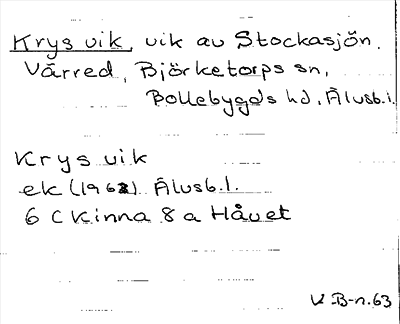 Krys vik, vik av Stockasjön.
Vårred, Björketorps sn,
Bollebygds hd, Älvsb.l.
Krys vik
ek (1962) Älvsb.l.
6 C Kinna 8 a Håvet
V B-n.63